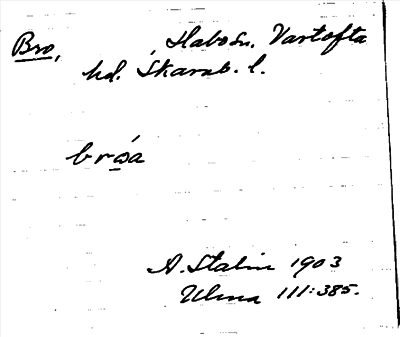 Bro, Habo sn. Vartofta
hd. Skarab. l.
bròa
A. Stalin 1903
Ulma 111:385.